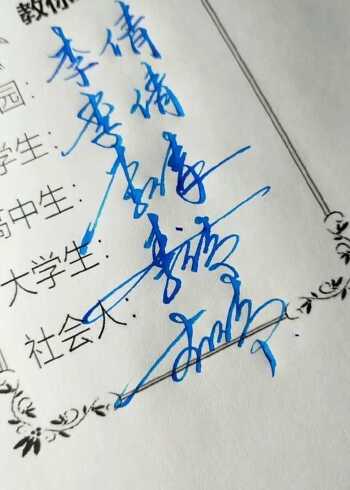 教你
园：李倩
学生：李倩
高中生：李倩
大学生：李倩
社会人：李倩